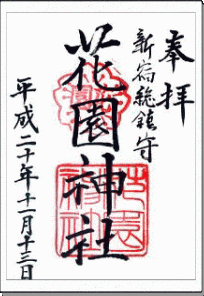 奉拝
新宿総鎮守
花園神社
平成二十年十一月十三日